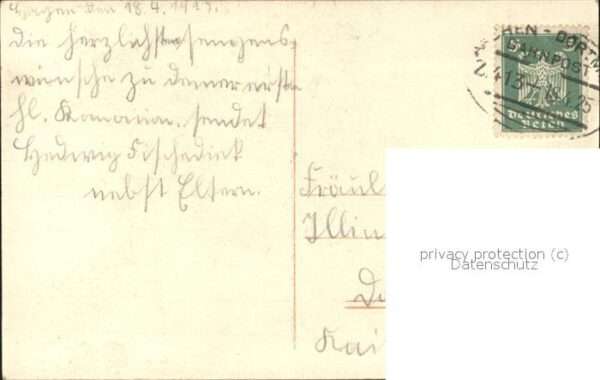 Hagen den 18.4.1925.
Die herzlichsten Segens-
wünsche zu deiner ersten
hl. Kommunion. sendet
Hedwig Fischedick
nebst Eltern.
HEN - DORTM
BAHNPOST
Deutsches
Reich
Fräul
Illin
Kai
privacy protection (c)
Datenschutz